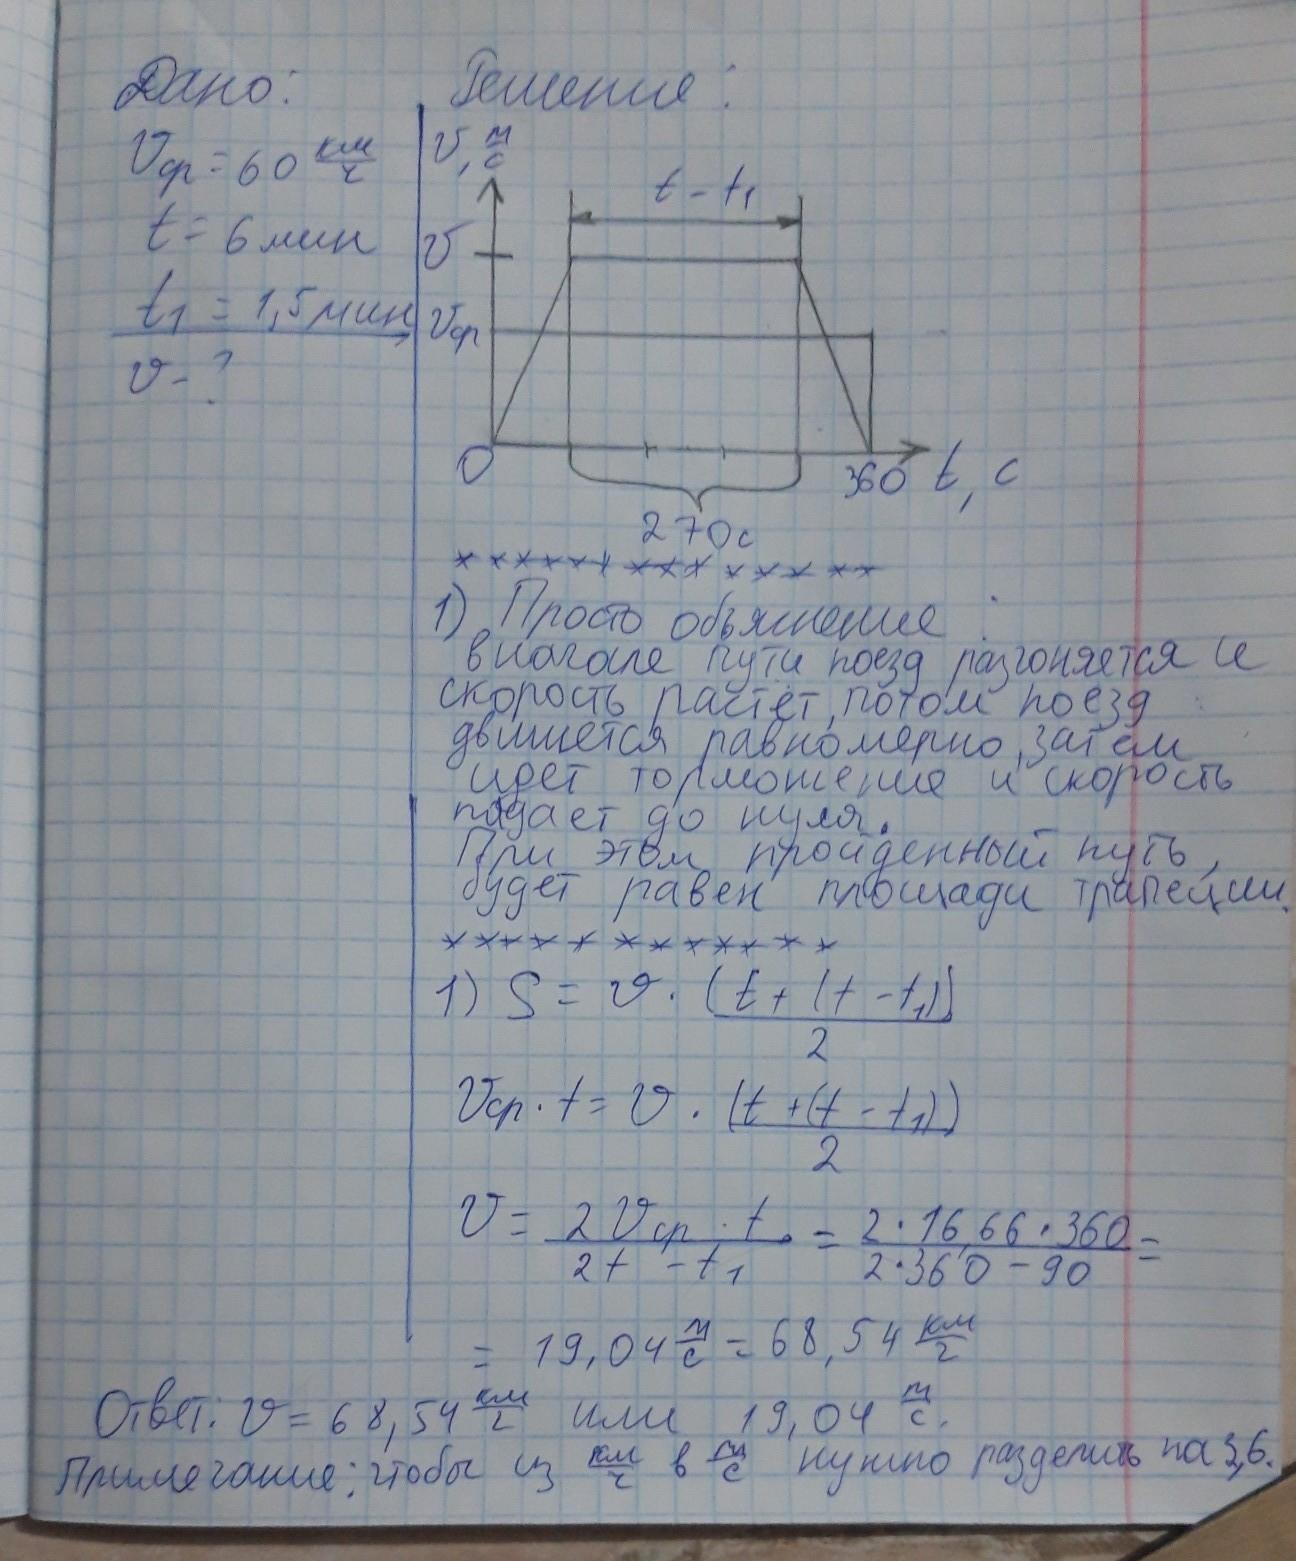 Дано:
Решение:
Vср = 60 км/ч
t = 6 мин
t₁ = 1,5 мин
v - ?
v, м/с
t - t₁
v
vср
0
360 t, с
270с
1) Просто объяснение:
вначале пути поезд разгоняется и
скорость растёт, потом поезд
движется равномерно, затем
идет торможение и скорость
падает до нуля.
При этом пройденный путь,
будет равен площади трапеции.
1) S = v · (t + (t - t₁))/2
Vср · t = v · (t + (t - t₁))/2
V = 2Vср · t/2t - t₁ = 2·16,66·360/2·360 - 90 =
= 19,04 м/с = 68,54 км/ч
Ответ: v = 68,54 км/ч или 19,04 м/с.
Примечание: чтобы из км/ч в м/с нужно разделить на 3,6.